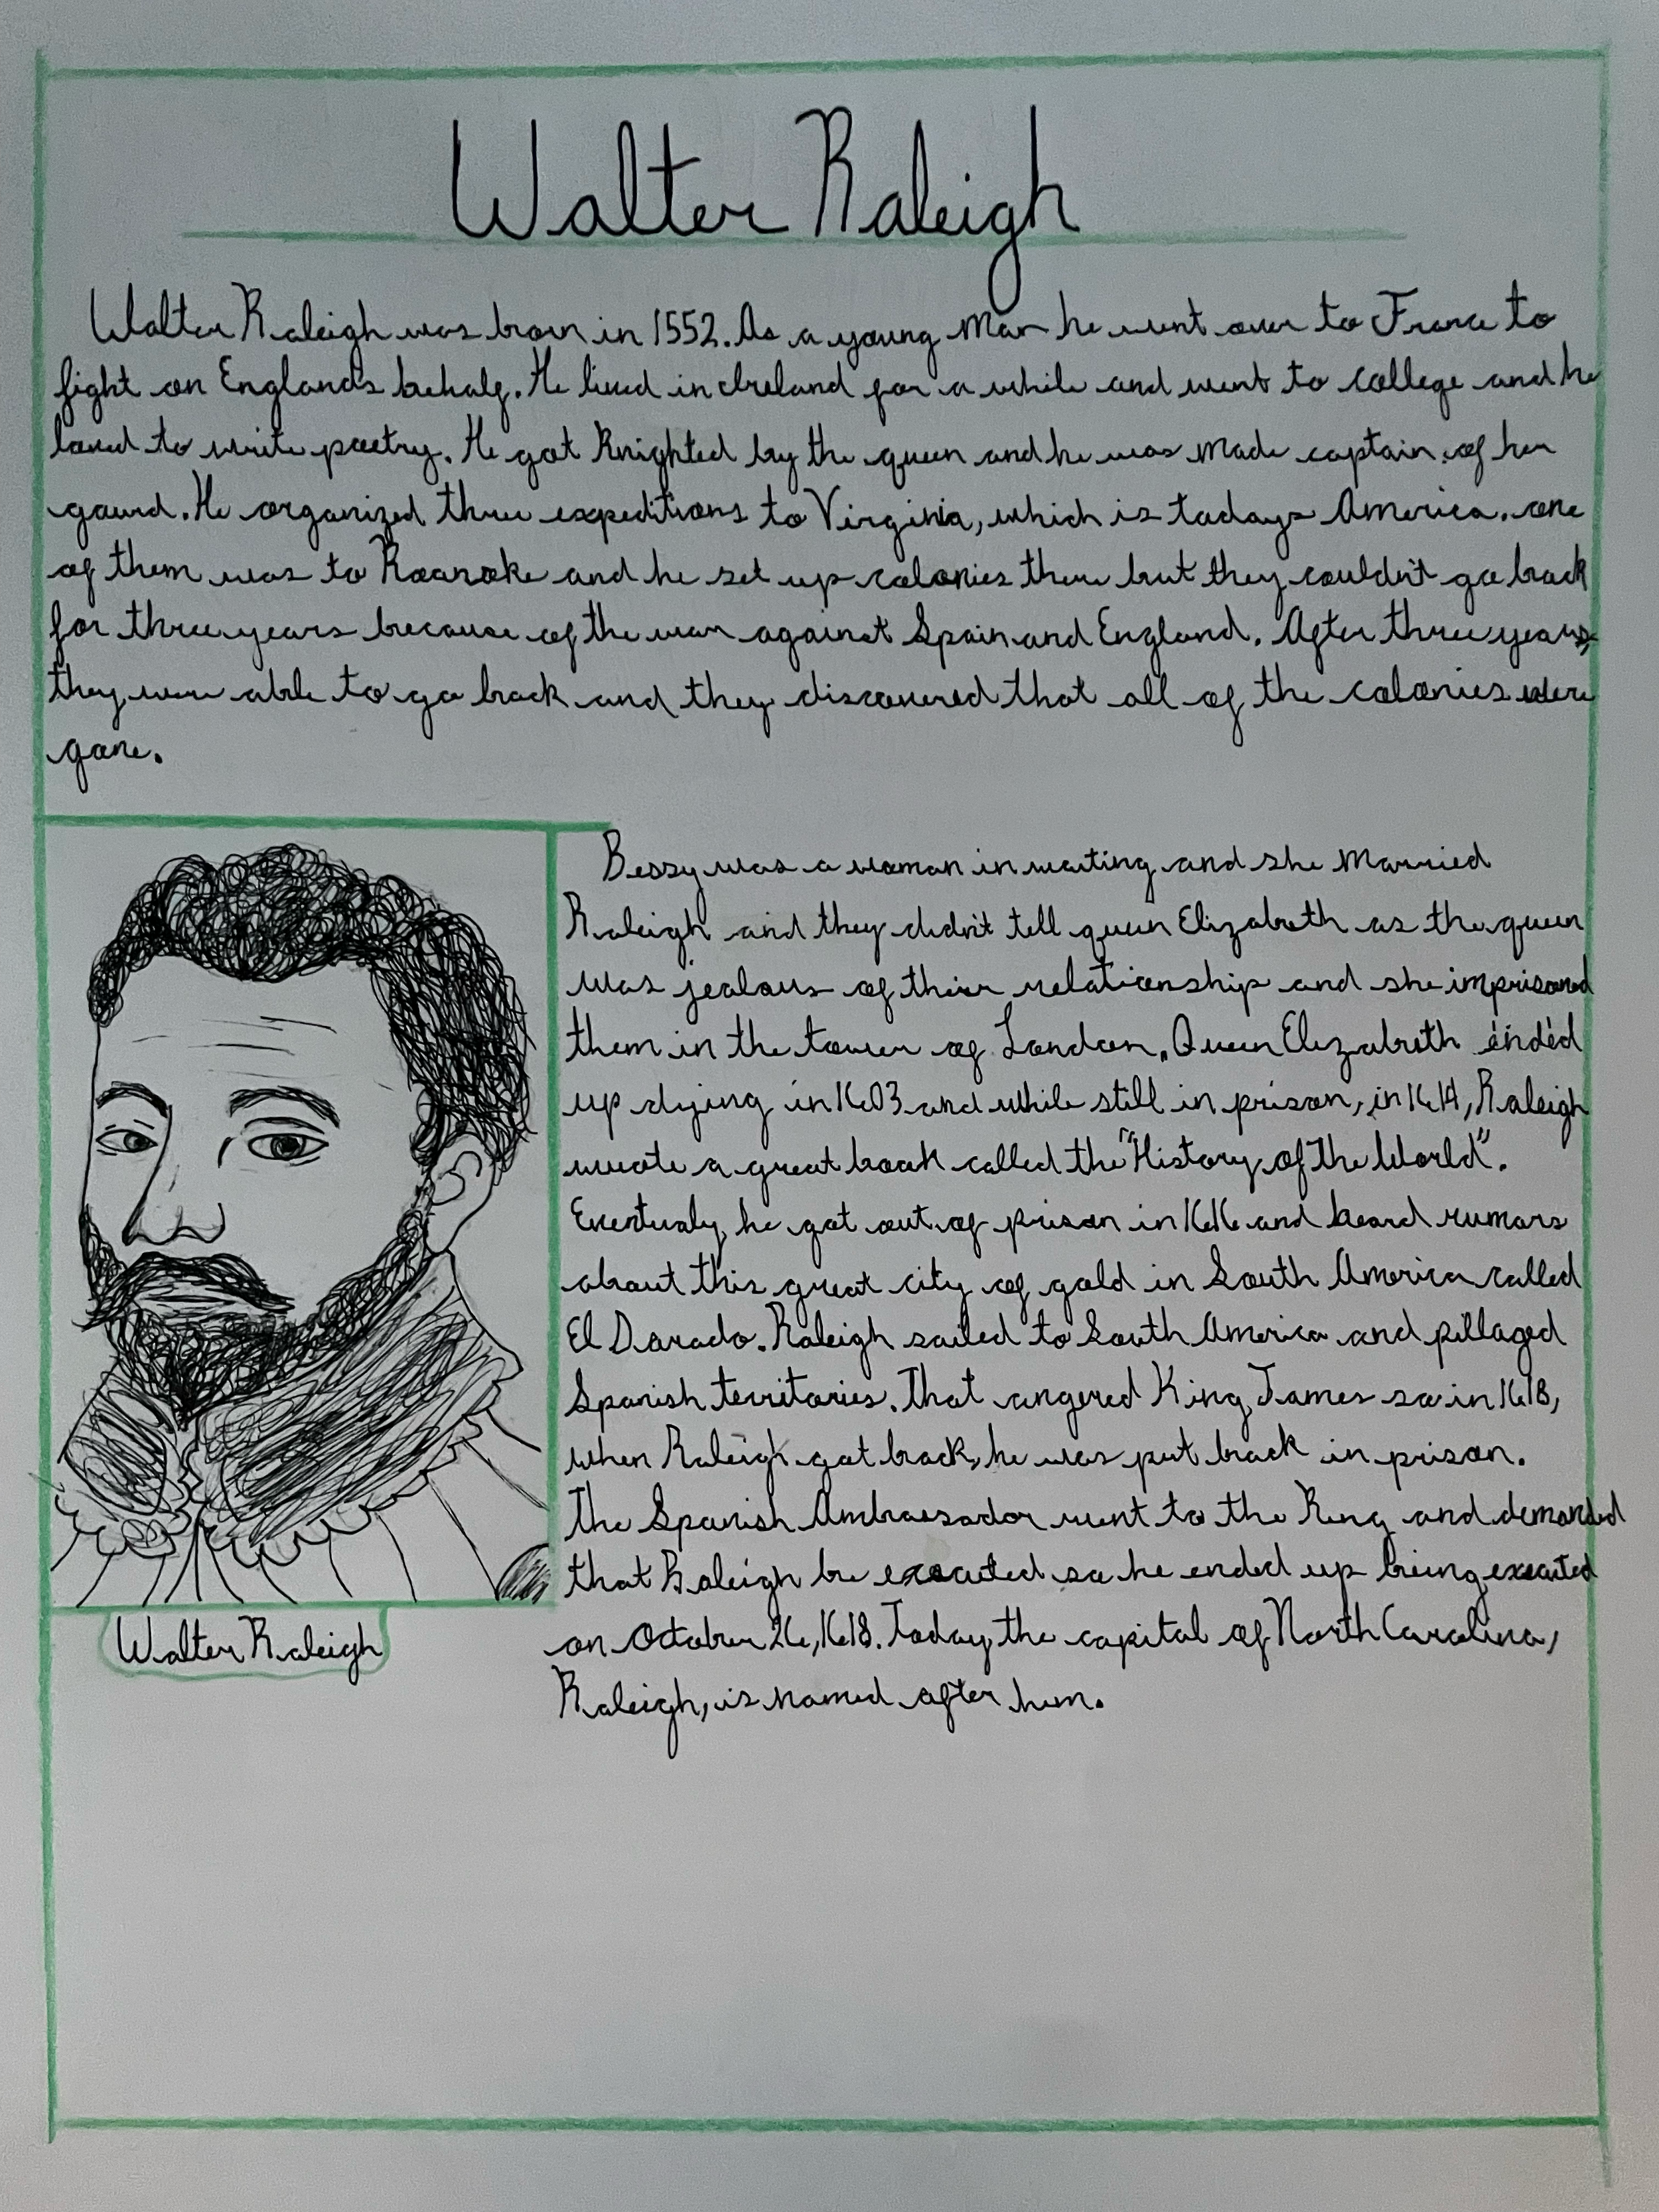 Walter Raleigh
Walter Raleigh was born in 1552. As a young man he went over to France to
fight on England's behalf. He lived in Ireland for a while and went to college and he
loved to write poetry. He got Knighted by the queen and he was made captain of her
gaurd. He organized three expeditions to Virginia, which is todays America. one
of them was to Roanoke and he set up colonies there but they couldn't go back
for three years because of the war against Spain and England. After three years,
they were able to go back and they discovered that all of the colonies were
gone.
Bessy was a woman in waiting and she married
Raleigh and they didn't tell queen Elizabeth as the queen
was jealous of their relationship and she imprisoned
them in the tower of London. Queen Elizabeth ended
up dying in 1603 and while still in prison, in 1614, Raleigh
wrote a great book called the "History of the World".
Eventualy, he got out of prison in 1616 and heard rumors
about this great city of gold in South America called
El Dorado. Raleigh sailed to South America and pillaged
Spanish territories. That angered King James so in 1618,
when Raleigh got back, he was put back in prison.
The Spanish Ambassador went to the King and demanded
that Raleigh be executed so he ended up being executed
on October 26, 1618. Today, the capital of North Carolina,
Raleigh, is named after him.
Walter Raleigh